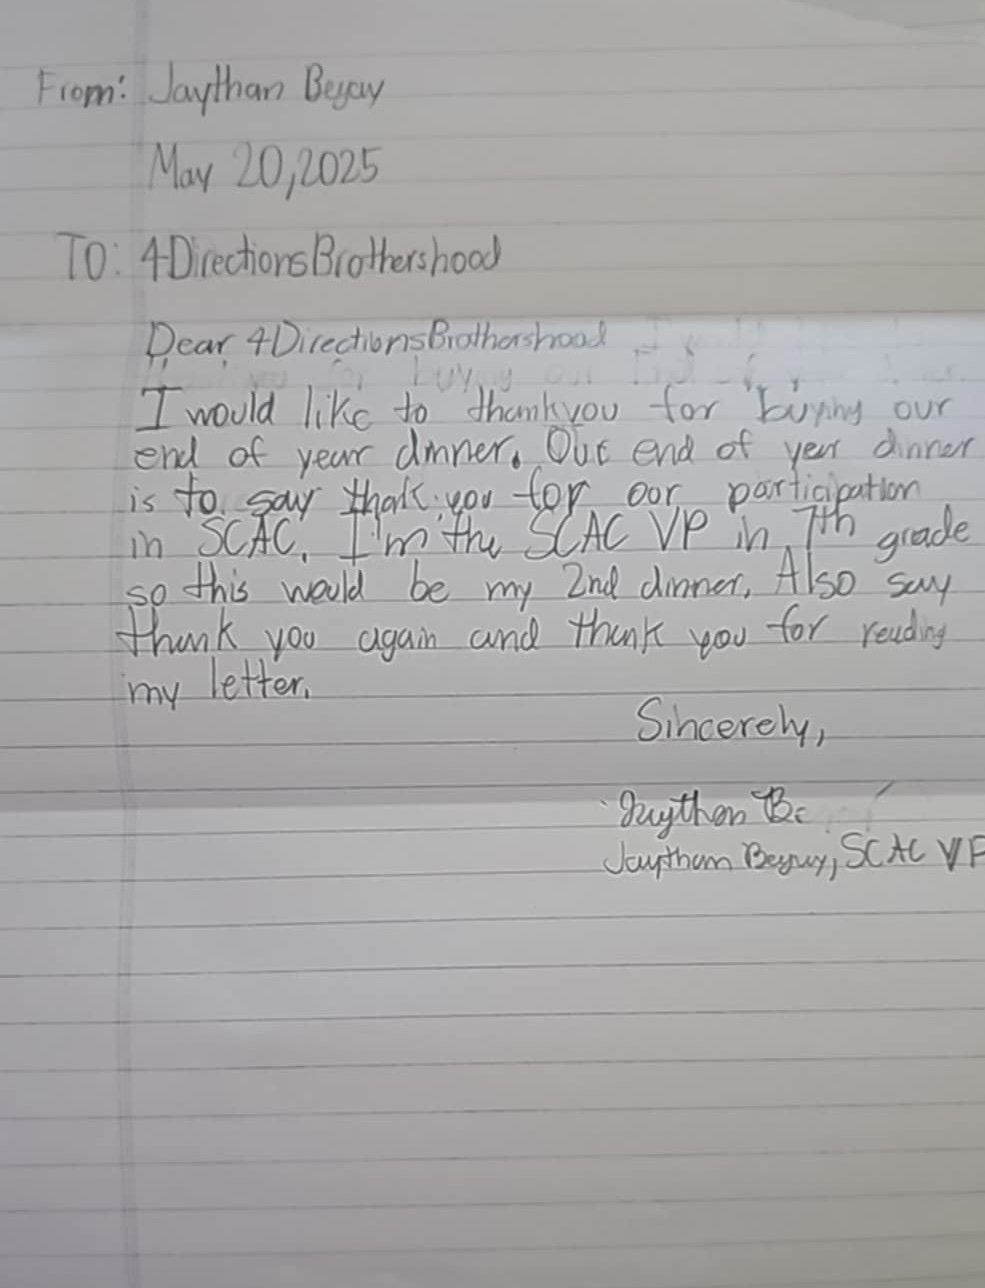 From: Jaythan Begay
May 20,2025
TO: 4DirectionsBrothershood
Dear 4DirectionsBrothershood
I would like to thankyou for buying our
end of year dinner. Our end of year dinner
is to say thank you for our participation
in SCAC. I'm the SCAC VP in 7th grade
so this would be my 2nd dinner. Also say
thank you again and thank you for reading
my letter.
Sincerely,
Jaython B.
Jaythan Begay, SCAC VP